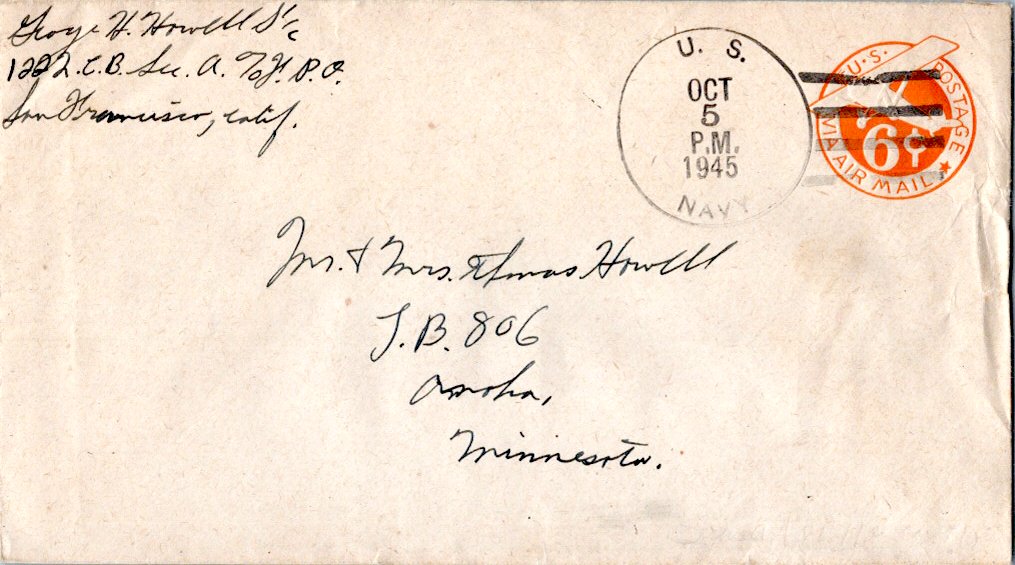 George H. Howell S1/c
122 C.B. Sec. A. c/o F.P.O.
San Francisco, Calif.
U. S.
OCT
5
P.M.
1945
NAVY
U.S. POSTAGE
6¢
VIA AIR MAIL
Mr. & Mrs. Howell
806
Omaha,
Minnesota.